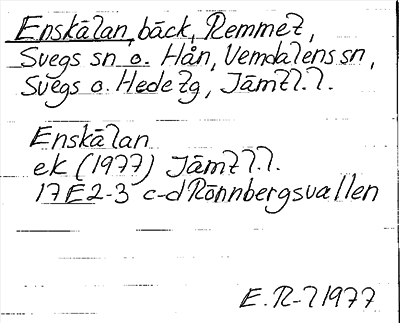 Enskälan, bäck, Remmet,
Svegs sn o. Hån, Vemdalens sn,
Svegs o. Hede tg, Jämtl.l.
Enskälan
ek (1977) Jämtl.l.
17E2-3 c-d Rönnbergsvallen
E.R-l 1977